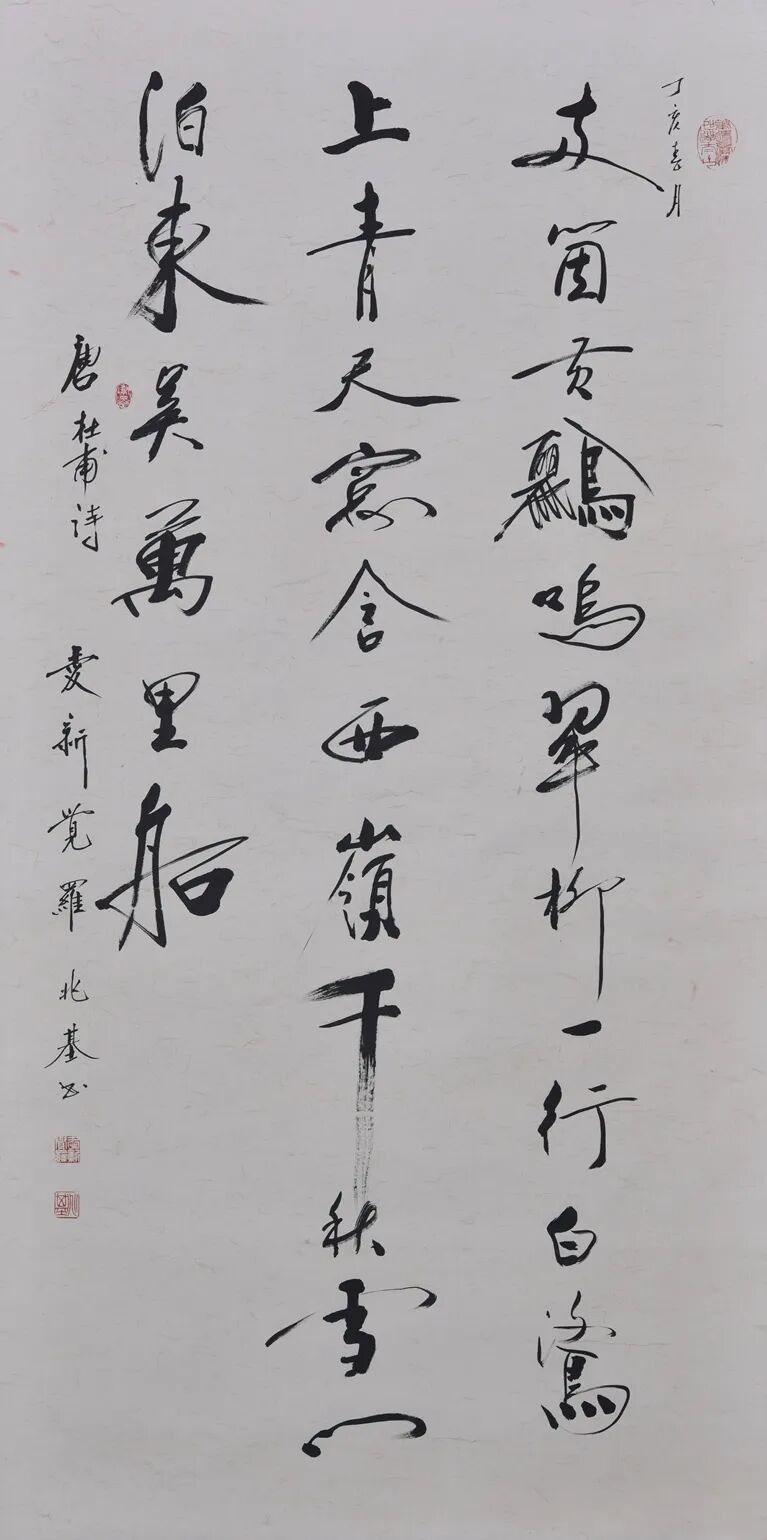 丁亥春月
兩箇黄鸝鳴翠柳一行白鷺
上青天窓含西嶺千秋雪門
泊東吴萬里船
唐杜甫詩 愛新覚羅兆基书